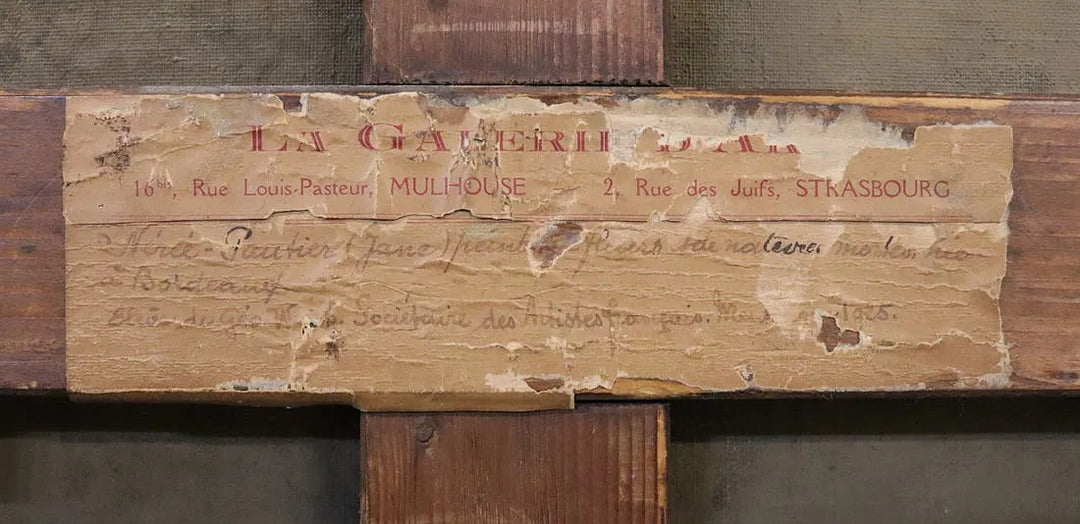 LA GALERIE D'AR
16bis, Rue Louis-Pasteur, MULHOUSE — 2, Rue des Juifs, STRASBOURG
Nérée-Gautier (Jane) peintre fleurs & de natures mortes née
à Bordeaux
Sociétaire des Artistes français.